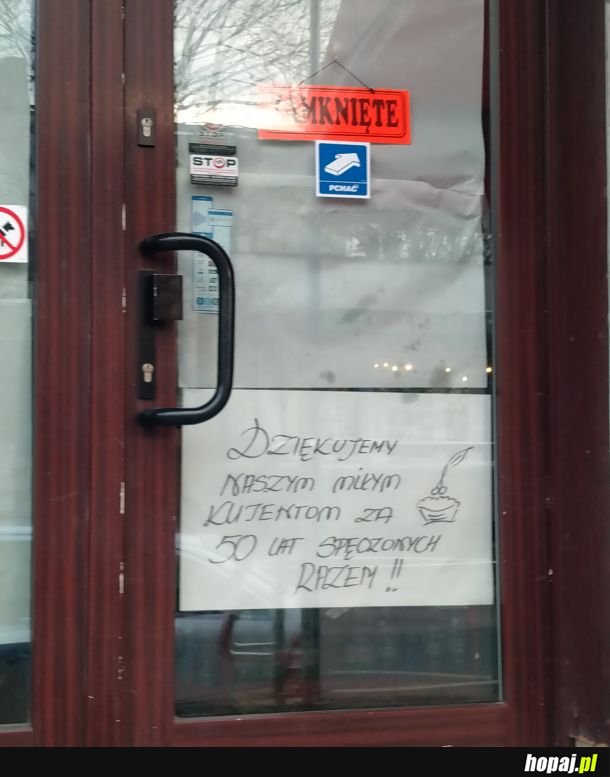 ZAMKNIĘTE
STOP
PCHAĆ
DZIĘKUJEMY
NASZYM MIŁYM
KLIENTOM ZA
50 LAT SPĘDZONYCH
RAZEM!!
hopaj.pl